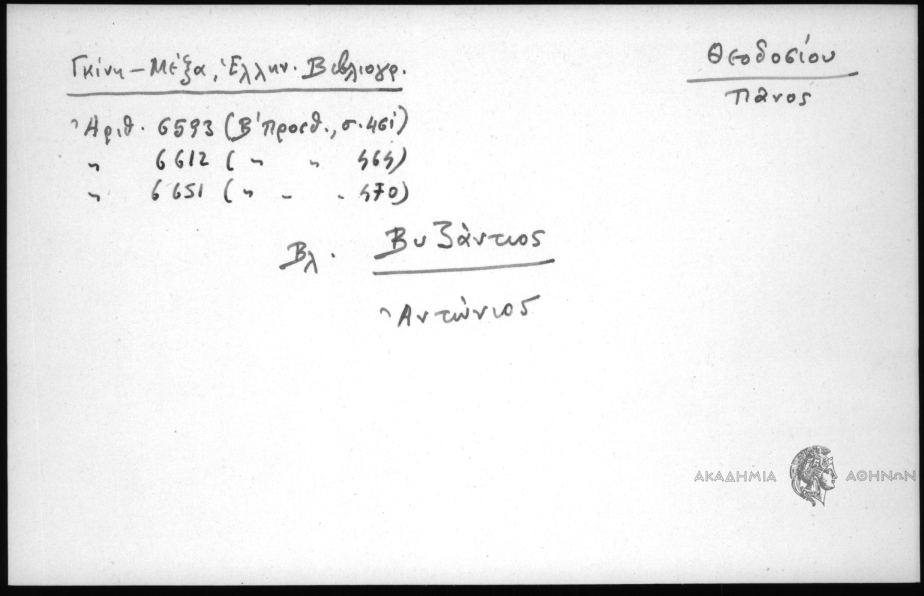 Θεοδοσίου
Πάνος
Γκίνη - Μέξα, Ἑλλην. Βιβλιογρ.
Ἀριθ. 6593 (Β' προσθ., σ. 461)
" 6612 ( " " 464)
" 6651 ( " " 470)
Βλ. Βυζάντιος
Ἀντώνιος
ΑΚΑΔΗΜΙΑ ΑΘΗΝΩΝ